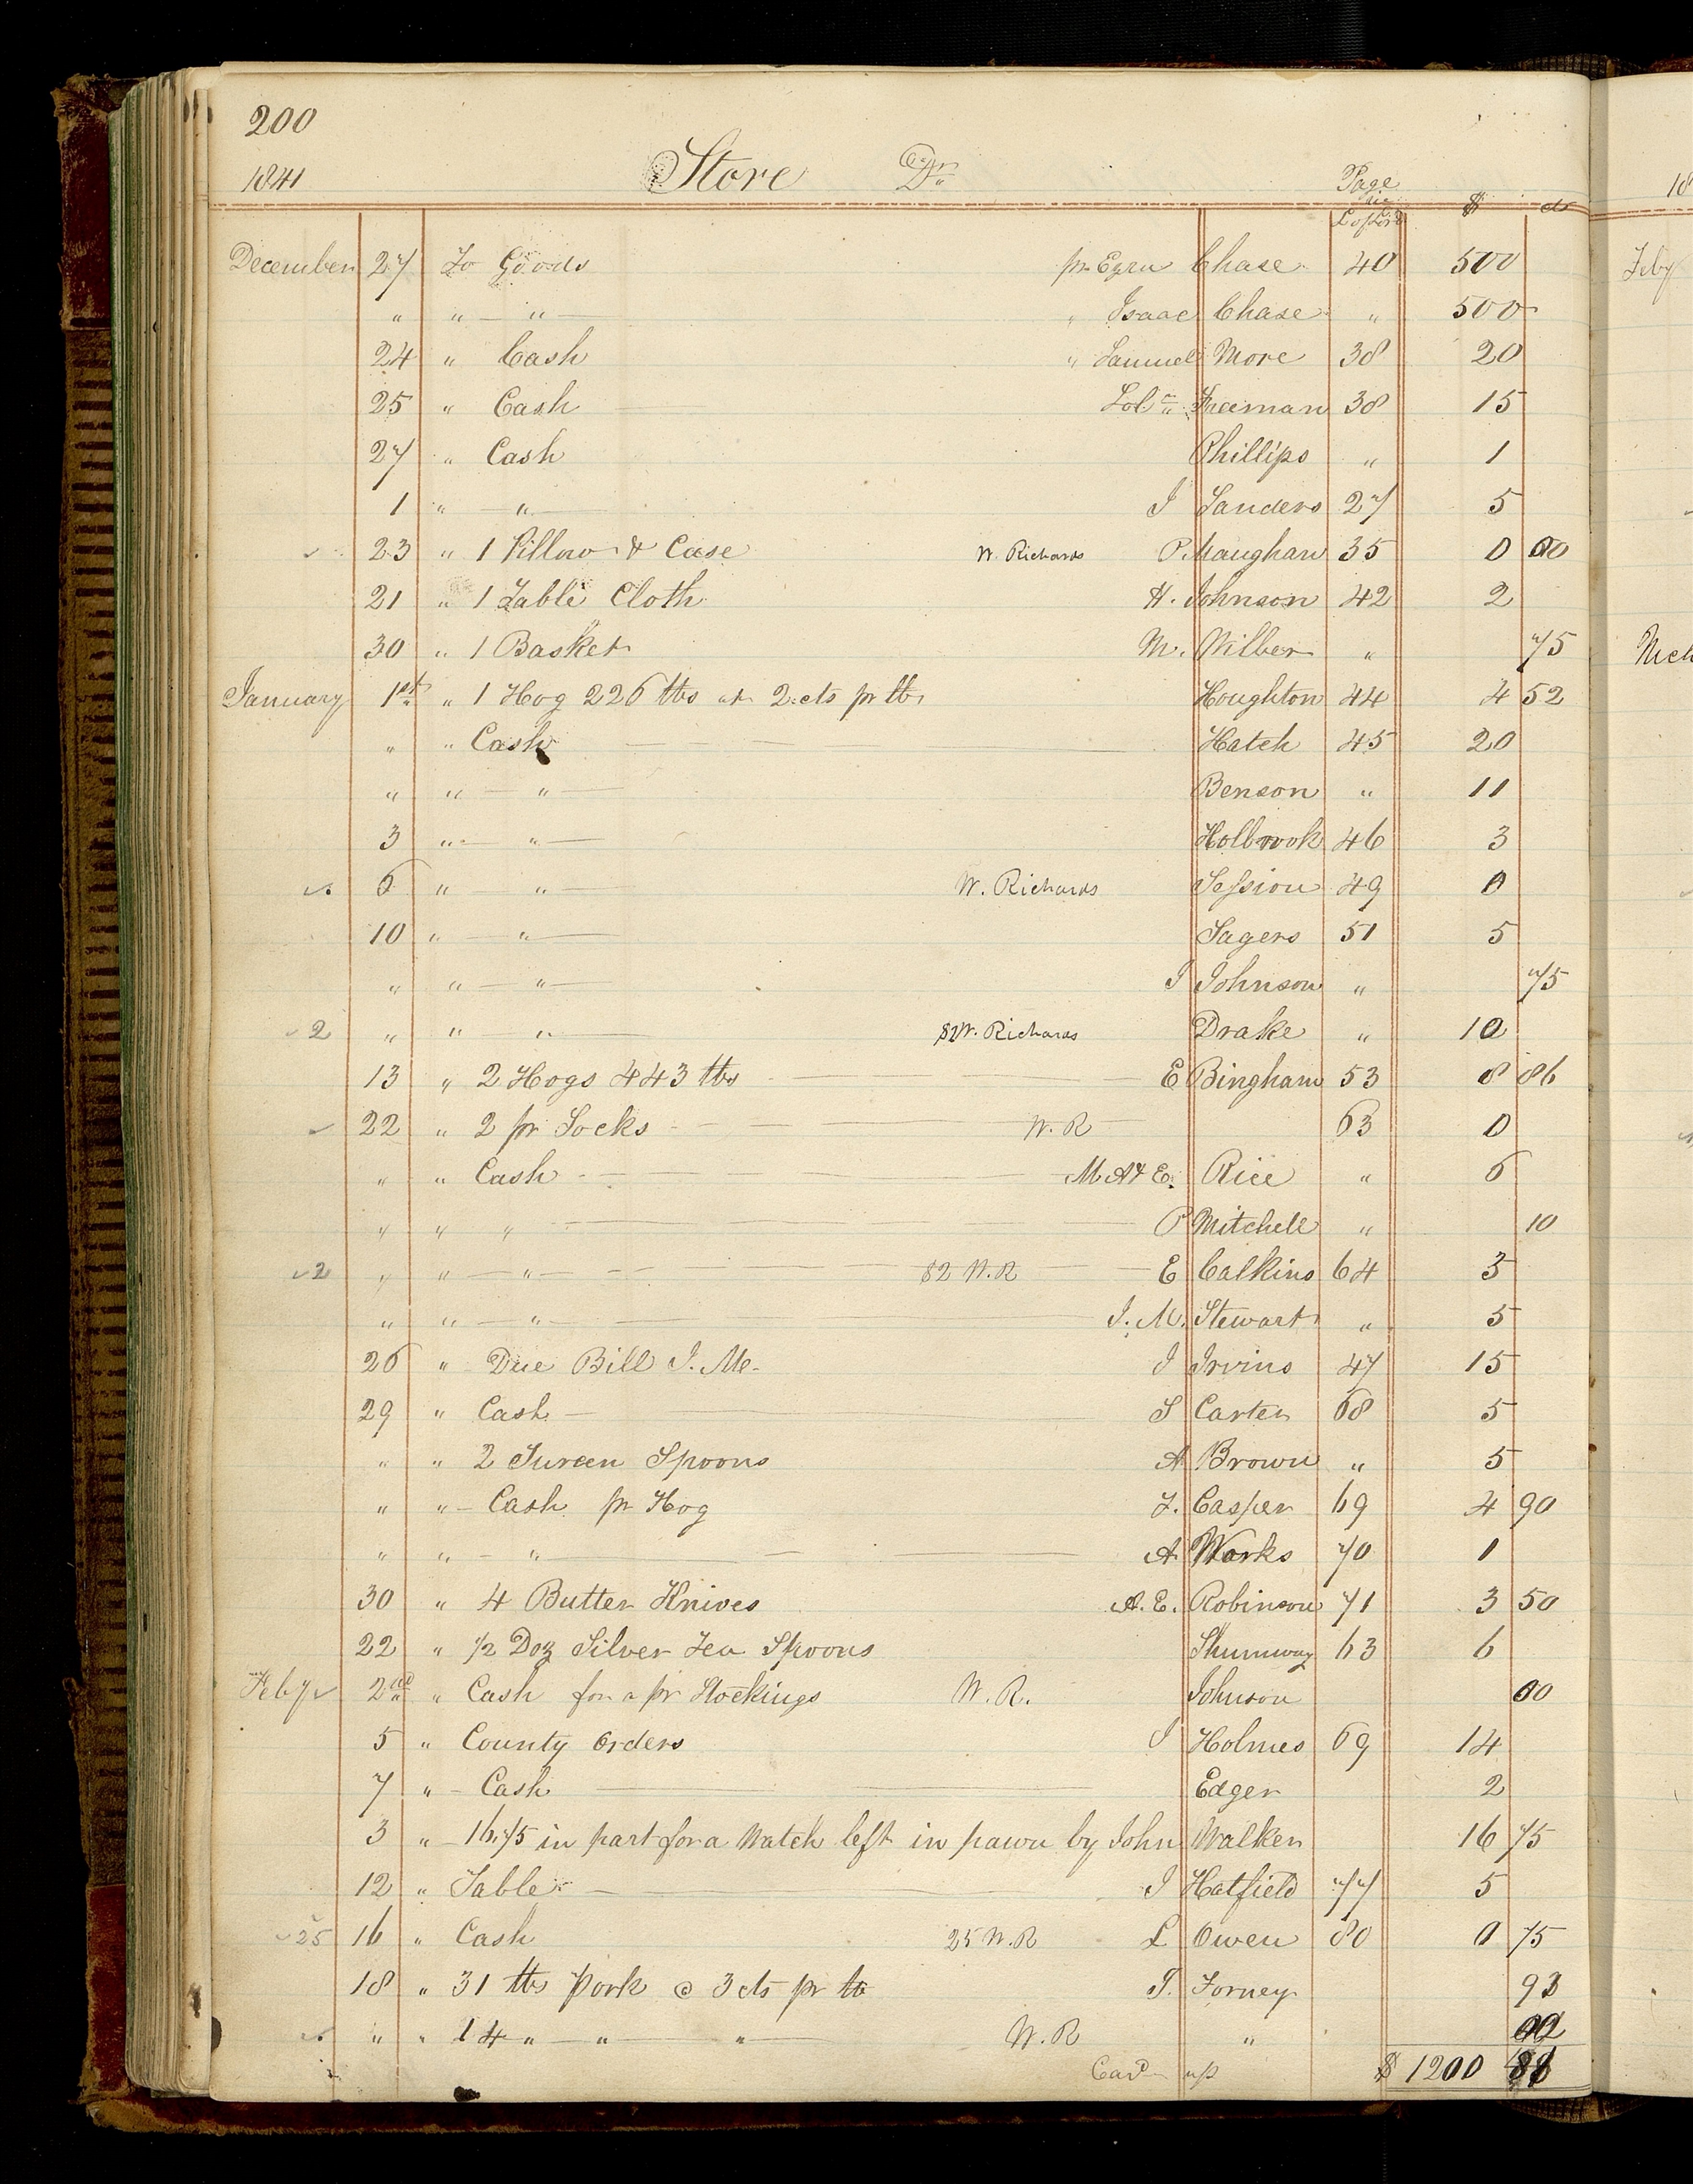 200
1841 Store Dr Page in Lofford $ cts
December 27 To Goods pr Ezra Chase 40 500
" " — " — " Isaac Chase " 500
24 " Cash " Samuel More 38 20
25 " Cash Soln Freeman 38 15
27 " Cash Phillips " 1
1 " — " — I Sanders 27 5
23 " 1 Pillow & Case W. Richards P. Maughan 35 0 00
21 " 1 Table Cloth H. Johnson 42 2
30 " 1 Basket M. Wilber " 75
January 1st " 1 Hog 226 lbs at 2 cts pr lb Houghton 44 4 52
" " Cash Hatch 45 20
" " — " — Benson " 11
3 " — " — Holbrook 46 3
6 " — " — W. Richards Session 49 0
10 " — " — Sagers 51 5
" " — " — I Johnson " 75
2 " " — " — $2 W. Richards Drake " 10
13 " 2 Hogs 443 lbs E Bingham 53 8 86
22 " 2 pr Socks W. R 63 0
" " Cash M A & E. Rice " 6
" " " P Mitchell " 10
2 " " — " — $2 W. R E Calkins 64 3
" " — " — I. M. Stewart " 5
26 " Due Bill I. Me- I Irvins 47 15
29 " Cash S Carter 68 5
" " 2 Tureen Spoons A Brown " 5
" " Cash pr Hog T. Casper 69 4 90
" " — " A Works 70 1
30 " 4 Butter Knives A. E. Robinson 71 3 50
22 " 1/2 Doz Silver Tea Spoons Shumway 63 6
Feby 2nd " Cash for a pr Stockings W. R. Johnson 00
5 " County Orders I Holmes 69 14
7 " Cash Edger 2
3 " 16,75 in part for a Watch left in pawn by John Walker 16 75
12 " Table I Hatfield 77 5
25 16 " Cash 25 W. R L Owen 80 0 75
18 " 31 lbs Pork @ 3 cts pr lb T. Forney 93
" " 14 " — " — " W. R "
Card up $ 1200
18
Feby
Mch